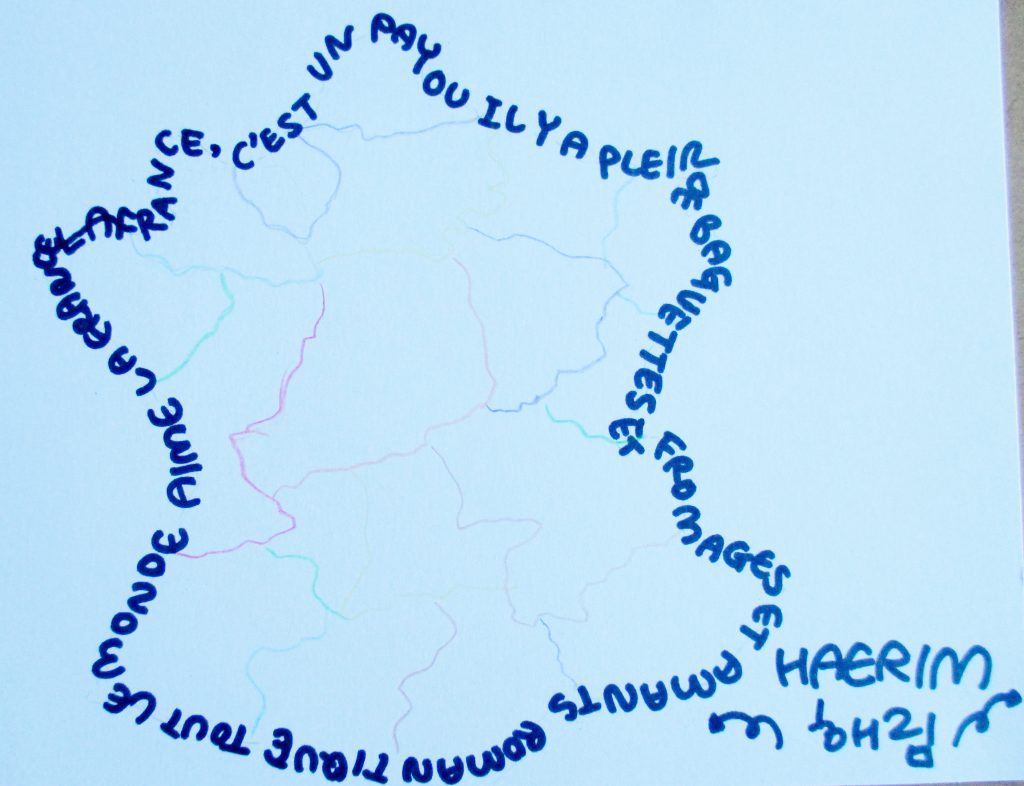 LA FRANCE, C'EST UN PAY OU IL Y A PLEIN DE BAGUETTES ET FROMAGES ET AMANTS ROMANTIQUE TOUT LE MONDE AIME LA GRANDE
HAERIM